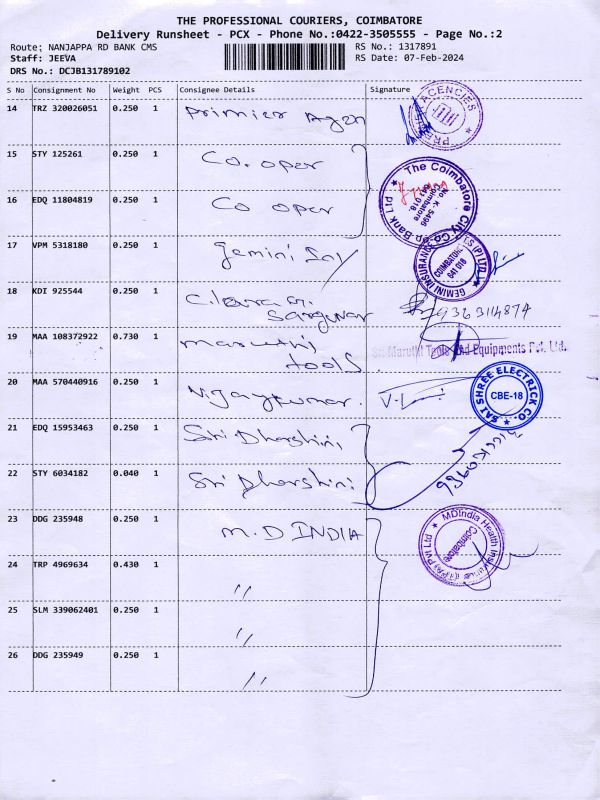 THE PROFESSIONAL COURIERS, COIMBATORE
Delivery Runsheet - PCX - Phone No.:0422-3505555 - Page No.:2
Route: NANJAPPA RD BANK CMS
RS No.: 1317891
Staff: JEEVA
RS Date: 07-Feb-2024
DRS No.: DCJB131789102
S No Consignment No Weight PCS Consignee Details Signature
14 TRZ 320026051 0.250 1 Primier Agen
15 STY 125261 0.250 1 Co. oper
The Coimbatore City Co.op Bank Ltd
No. K. 5495
Coimbatore
641 018
16 EDQ 11804819 0.250 1 Co oper
17 VPM 5318180 0.250 1 Gemini Ins
GEMINI INSURANCE (P) LTD.
COIMBATORE
641 018
18 KDI 925544 0.250 1
19 MAA 108372922 0.730 1 tools
Sri Maruthi Tools And Equipments Pvt. Ltd.
20 MAA 570440916 0.250 1 Vijaykumar.
SAI SHREE ELECTRICK CO.
CBE-18
21 EDQ 15953463 0.250 1 Sri Dharshini
22 STY 6034182 0.040 1 Sri Dharshini
23 DDG 235948 0.250 1 M.D INDIA
MDIndia Health Insurance (TPA) Pvt Ltd
Coimbatore
24 TRP 4969634 0.430 1 "
25 SLM 339062401 0.250 1 "
26 DDG 235949 0.250 1 "